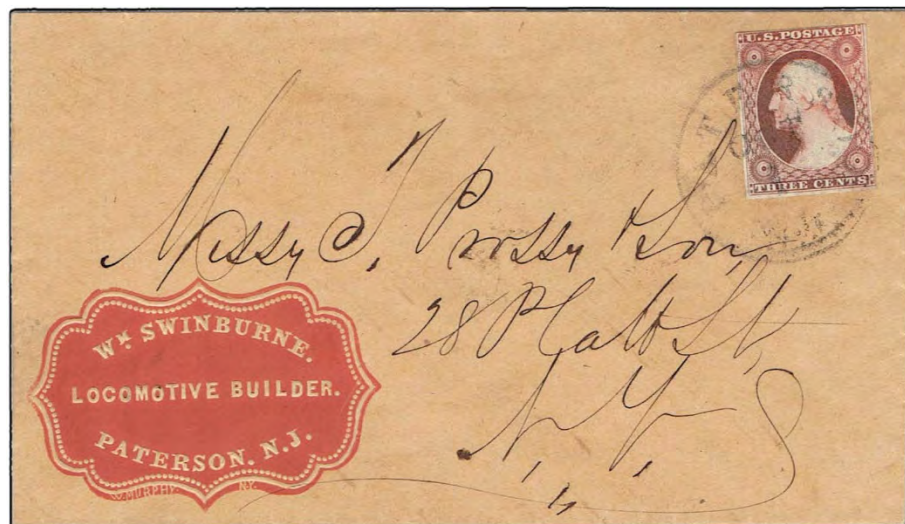 U.S. POSTAGE
THREE CENTS
Messrs J. &
28 Platt St,
N. Y.
WM SWINBURNE.
LOCOMOTIVE BUILDER.
PATERSON. N.J.
W. MURPHY. N.Y.